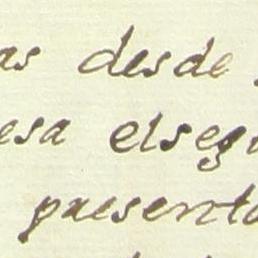 as desde
esa elseg
presenta